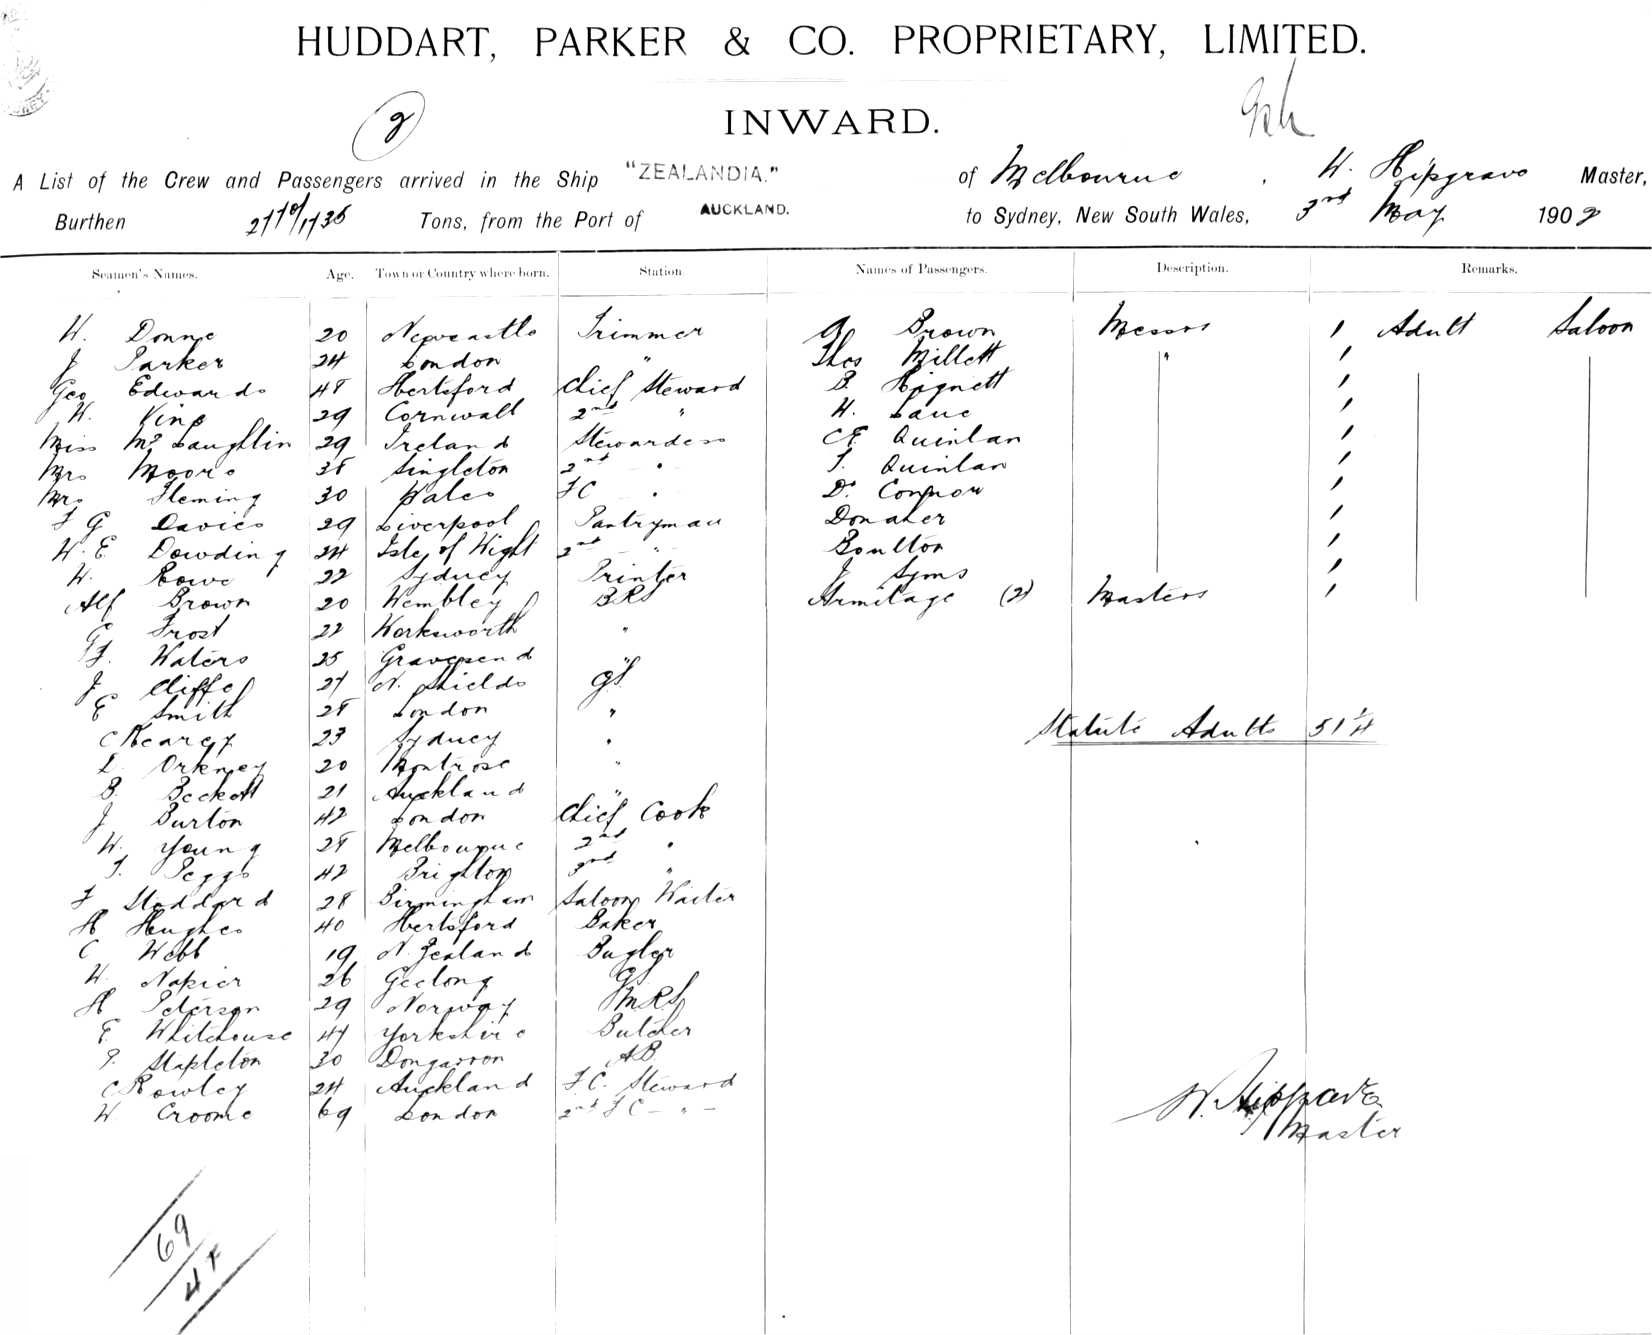 HUDDART, PARKER & CO. PROPRIETARY, LIMITED.
2
INWARD.
A List of the Crew and Passengers arrived in the Ship "ZEALANDIA." of Melbourne, W. Hipgrave Master,
Burthen Tons, from the Port of AUCKLAND. to Sydney, New South Wales, 3rd May 1902
Seamen's Names. Age. Town or Country where born. Station Names of Passengers. Description. Remarks.
W. Donne 20 Newcastle Trimmer Brown Messrs 1 Adult Saloon
J Parker 24 London " Thos Millett " 1
Geo Edwards 48 Hertsford Chief Steward B. Hignett 1
W. King 29 Cornwall 2nd " H. Lane 1
Miss McLaughlin 29 Ireland Stewardess C E Quinlan 1
Mrs Moore 38 Singleton 2nd " T. Quinlan 1
Mrs Fleming 30 Wales F C " Dr. Connow 1
F G Davies 29 Liverpool Pantryman Donaher 1
W. E. Dowding 24 Isle of Wight 2nd " Boulton 1
W. Rowe 22 Sydney Printer J Syms 1
Alf Brown 20 Wembley B.R.S Armitage (2) Masters 1
G Frost 22 Worksworth "
F. Waters 25 Gravesend "
J Cliffe 27 N. Shields G S
E Smith 28 London "
C Kearey 23 Sydney "
D. Orkney 20 Montrose "
B. Beckett 21 Auckland "
J Burton 42 London Chief Cook
W. Young 28 Melbourne 2nd "
T. Peggs 42 Brighton 3rd "
F Stoddard 28 Birmingham Saloon Waiter
H Hughes 40 Hertsford Baker
C Webb 19 N. Zealand Bugler
W. Napier 26 Geelong
H Peterson 29 Norway M R S
E. Whitehouse 47 Yorkshire Butcher
P. Stapleton 30 Dongarron A B.
C Rowley 24 Auckland F. C. Steward
W Croome 69 London 2nd F C - " -
Statute Adults 51 1/4
W. Hipgrave
Master
69